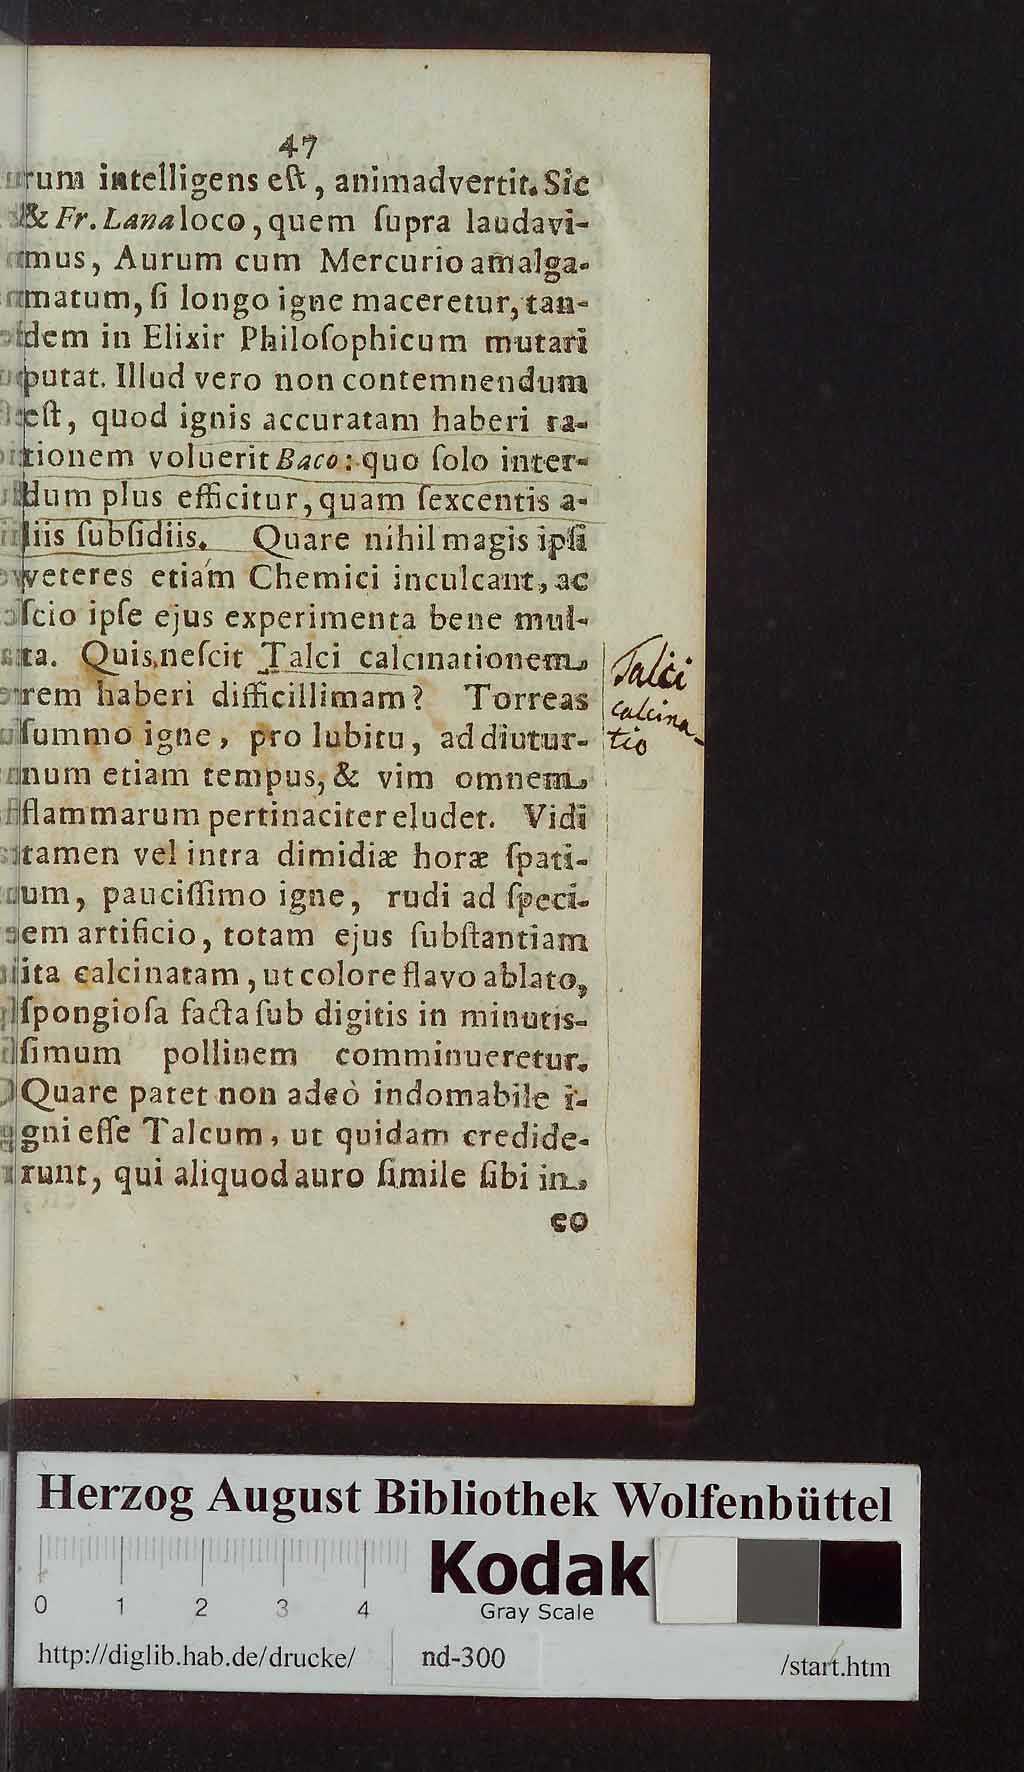 47
rum intelligens eſt, animadvertit. Sic
& Fr. Lana loco, quem ſupra laudavi-
mus, Aurum cum Mercurio amalga-
matum, ſi longo igne maceretur, tan-
dem in Elixir Philoſophicum mutari
putat. Illud vero non contemnendum
eſt, quod ignis accuratam haberi ra-
tionem voluerit Baco: quo ſolo inter-
dum plus efficitur, quam ſexcentis a-
liis ſubſidiis. Quare nihil magis ipſi
veteres etiam Chemici inculcant, ac
ſcio ipſe ejus experimenta bene mul-
ta. Quis neſcit Talci calcinationem
rem haberi difficillimam? Torreas
ſummo igne, pro lubitu, ad diutur-
num etiam tempus, & vim omnem
flammarum pertinaciter eludet. Vidi
tamen vel intra dimidiæ horæ ſpati-
um, pauciſſimo igne, rudi ad ſpeci-
em artificio, totam ejus ſubſtantiam
ita calcinatam, ut colore flavo ablato,
ſpongioſa facta ſub digitis in minutiſ-
ſimum pollinem comminueretur.
Quare patet non adeò indomabile i-
gni eſſe Talcum, ut quidam credide-
runt, qui aliquod auro ſimile ſibi in
co
Talci
calcina-
tio
Herzog August Bibliothek Wolfenbüttel
0 1 2 3 4
Kodak
Gray Scale
http://diglib.hab.de/drucke/ nd-300 /start.htm